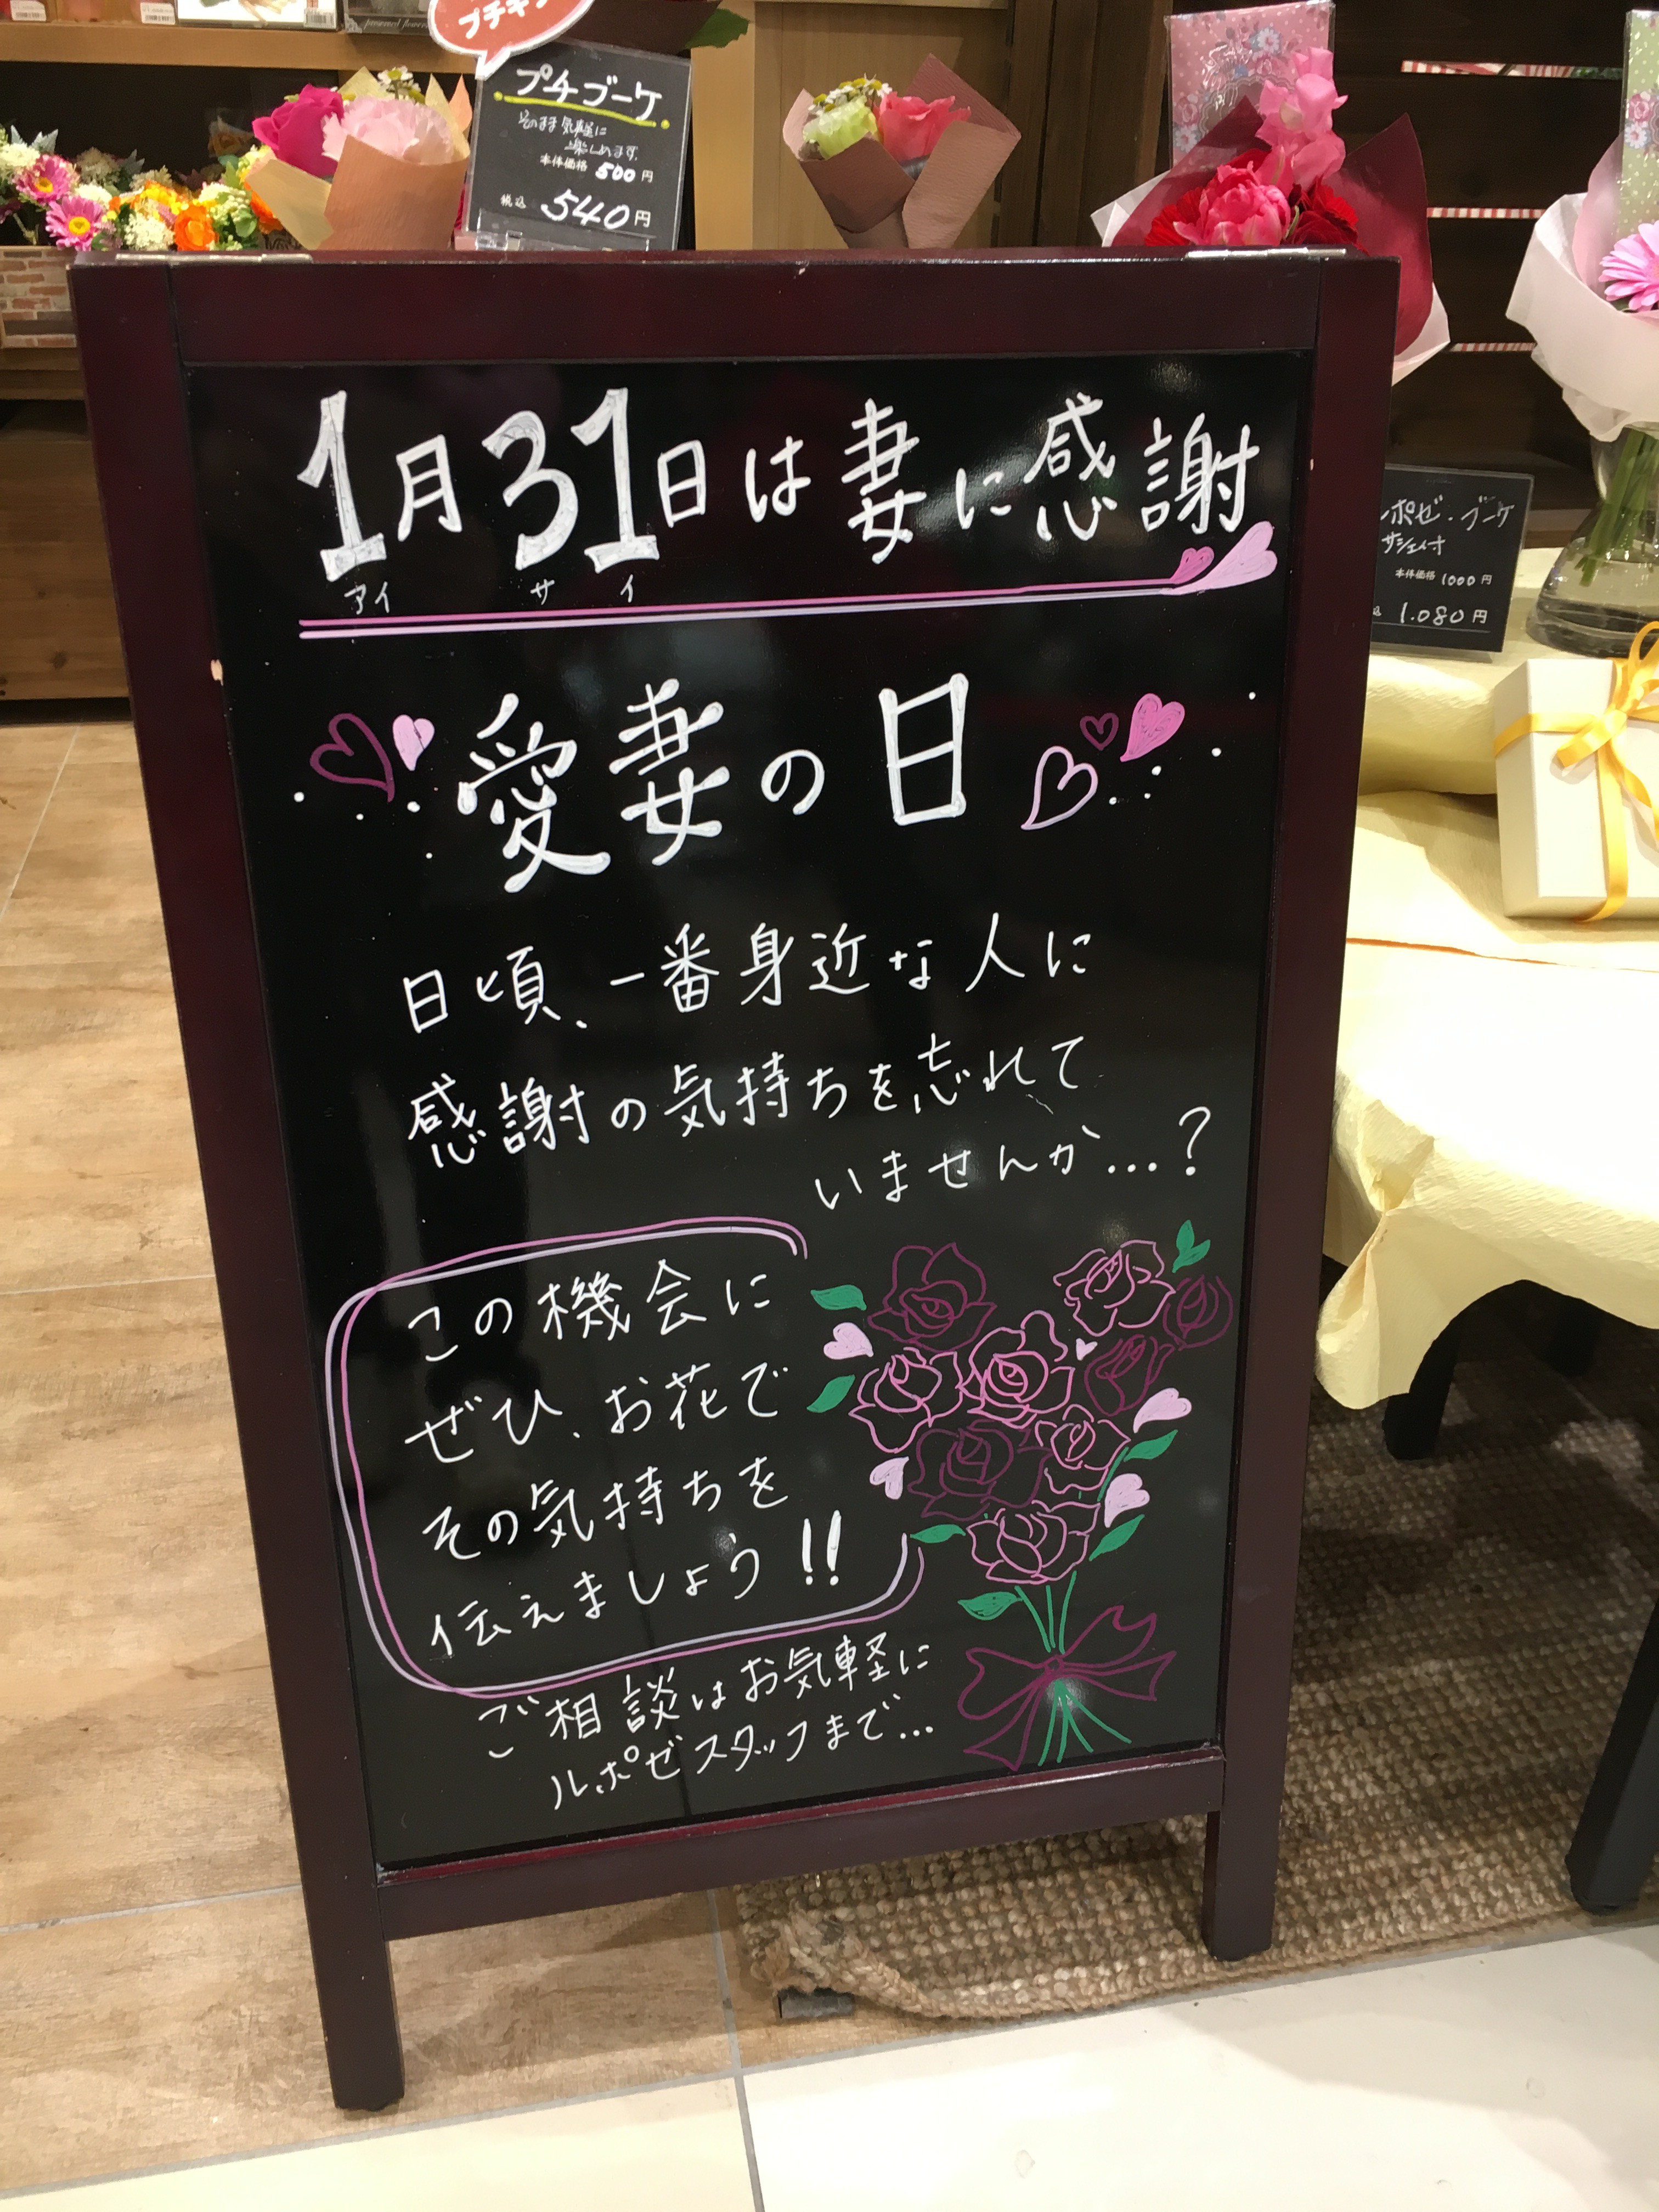 プチブーケ
そのまま気軽に
楽しめます。
本体価格 500円
税込 540円
1月31日は妻に感謝
アイ サ イ
愛妻の日
日頃、一番身近な人に
感謝の気持ちを忘れて
いませんか…?
この機会に
ぜひ、お花で
その気持ちを
伝えましょう!!
ご相談はお気軽に
ルポゼスタッフまで…
ポゼ・ブーケ
サシェ付
本体価格 1000円
込 1.080円